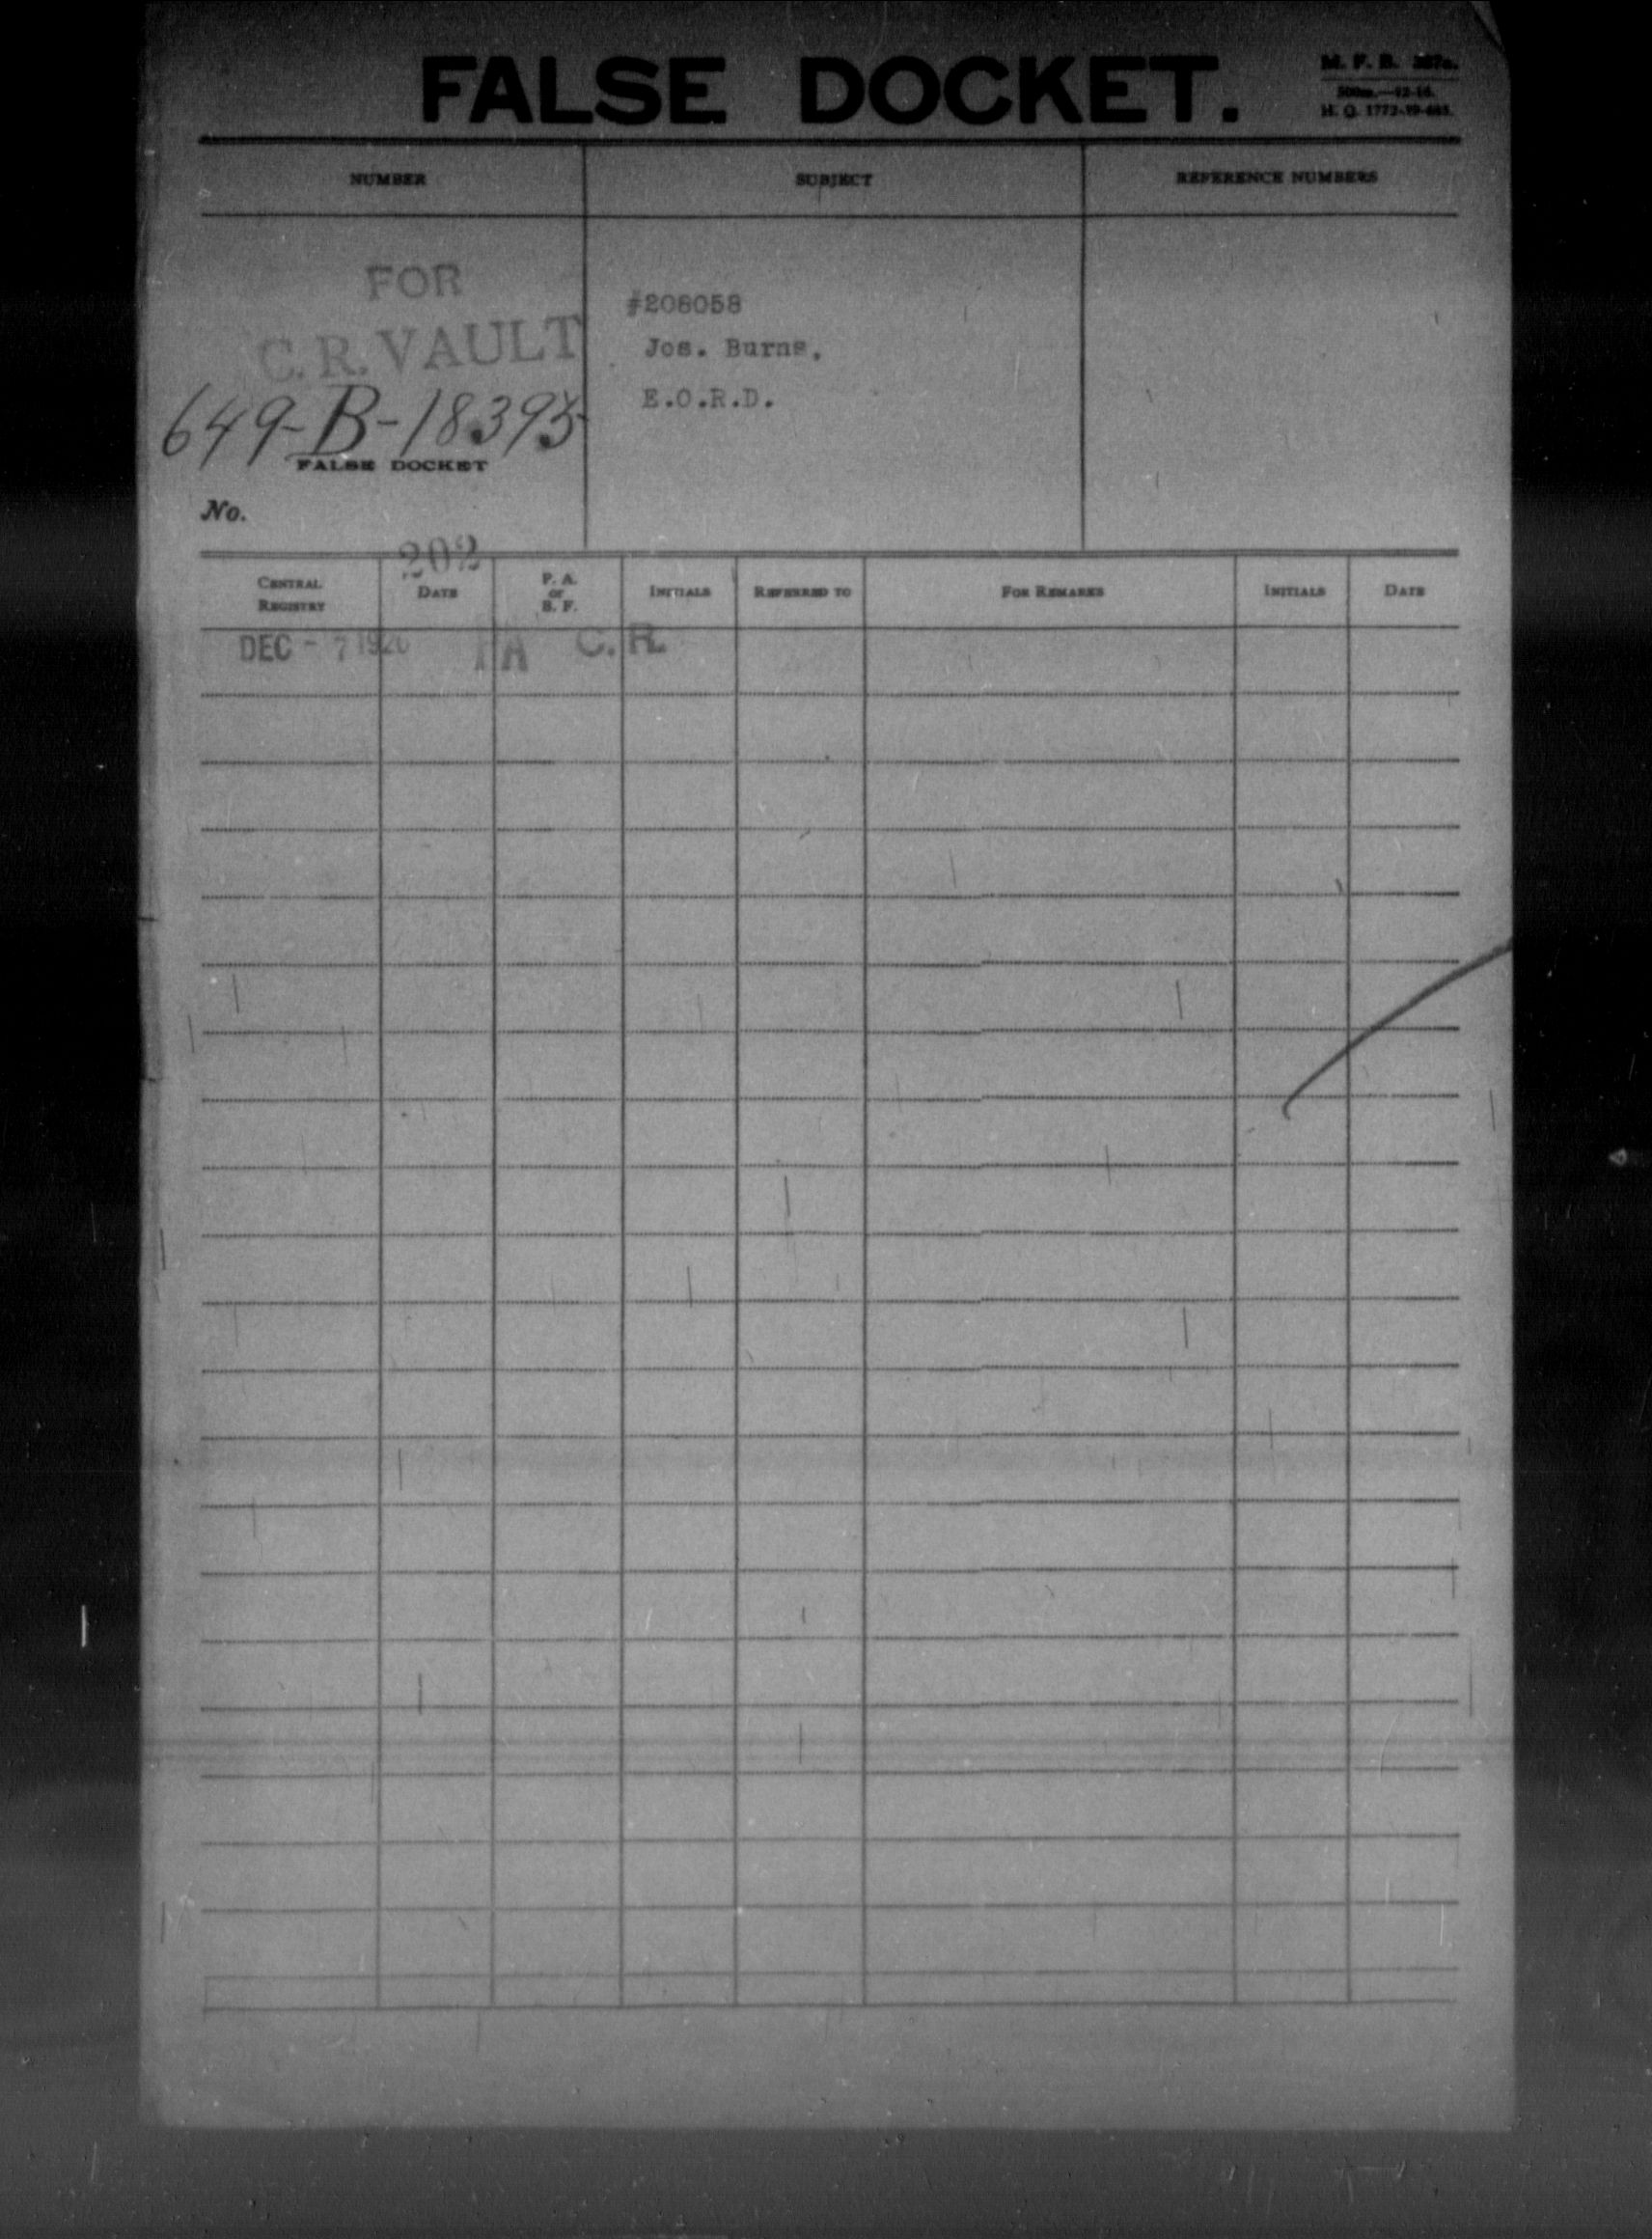 FALSE DOCKET.
M. F. B.
H. Q. 1772-39-
NUMBER SUBJECT REFERENCE NUMBERS
FOR
C. R. VAULT
649-B-18395
FALSE DOCKET
No.
#208058
Jos. Burns,
E.O.R.D.
202
CENTRAL REGISTRY DATE P. A. or B. F. INITIALS REFERRED TO FOR REMARKS INITIALS DATE
DEC - 7 1920 PA C. R.